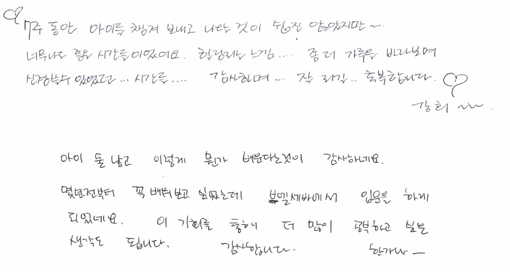 7주 동안 아이를 챙겨 보내고 나는 것이 쉽진 않았지만~
너무나도 힘든 시간들이었어요. 힐링되는 느낌.... 좀 더 가족을 바라보며
신경쓸수 있었고... 시간들.... 감사하며... 잘 되길.. 축복합니다.
아이 둘 낳고 이렇게 뭔가 배운다는것이 감사하네요.
몇년전부터 꼭 배워보고 싶었는데 입문을 하게
되었네요. 이 기회를 통해 더 많이 공부하고 싶은
생각도 듭니다. 감사합니다.